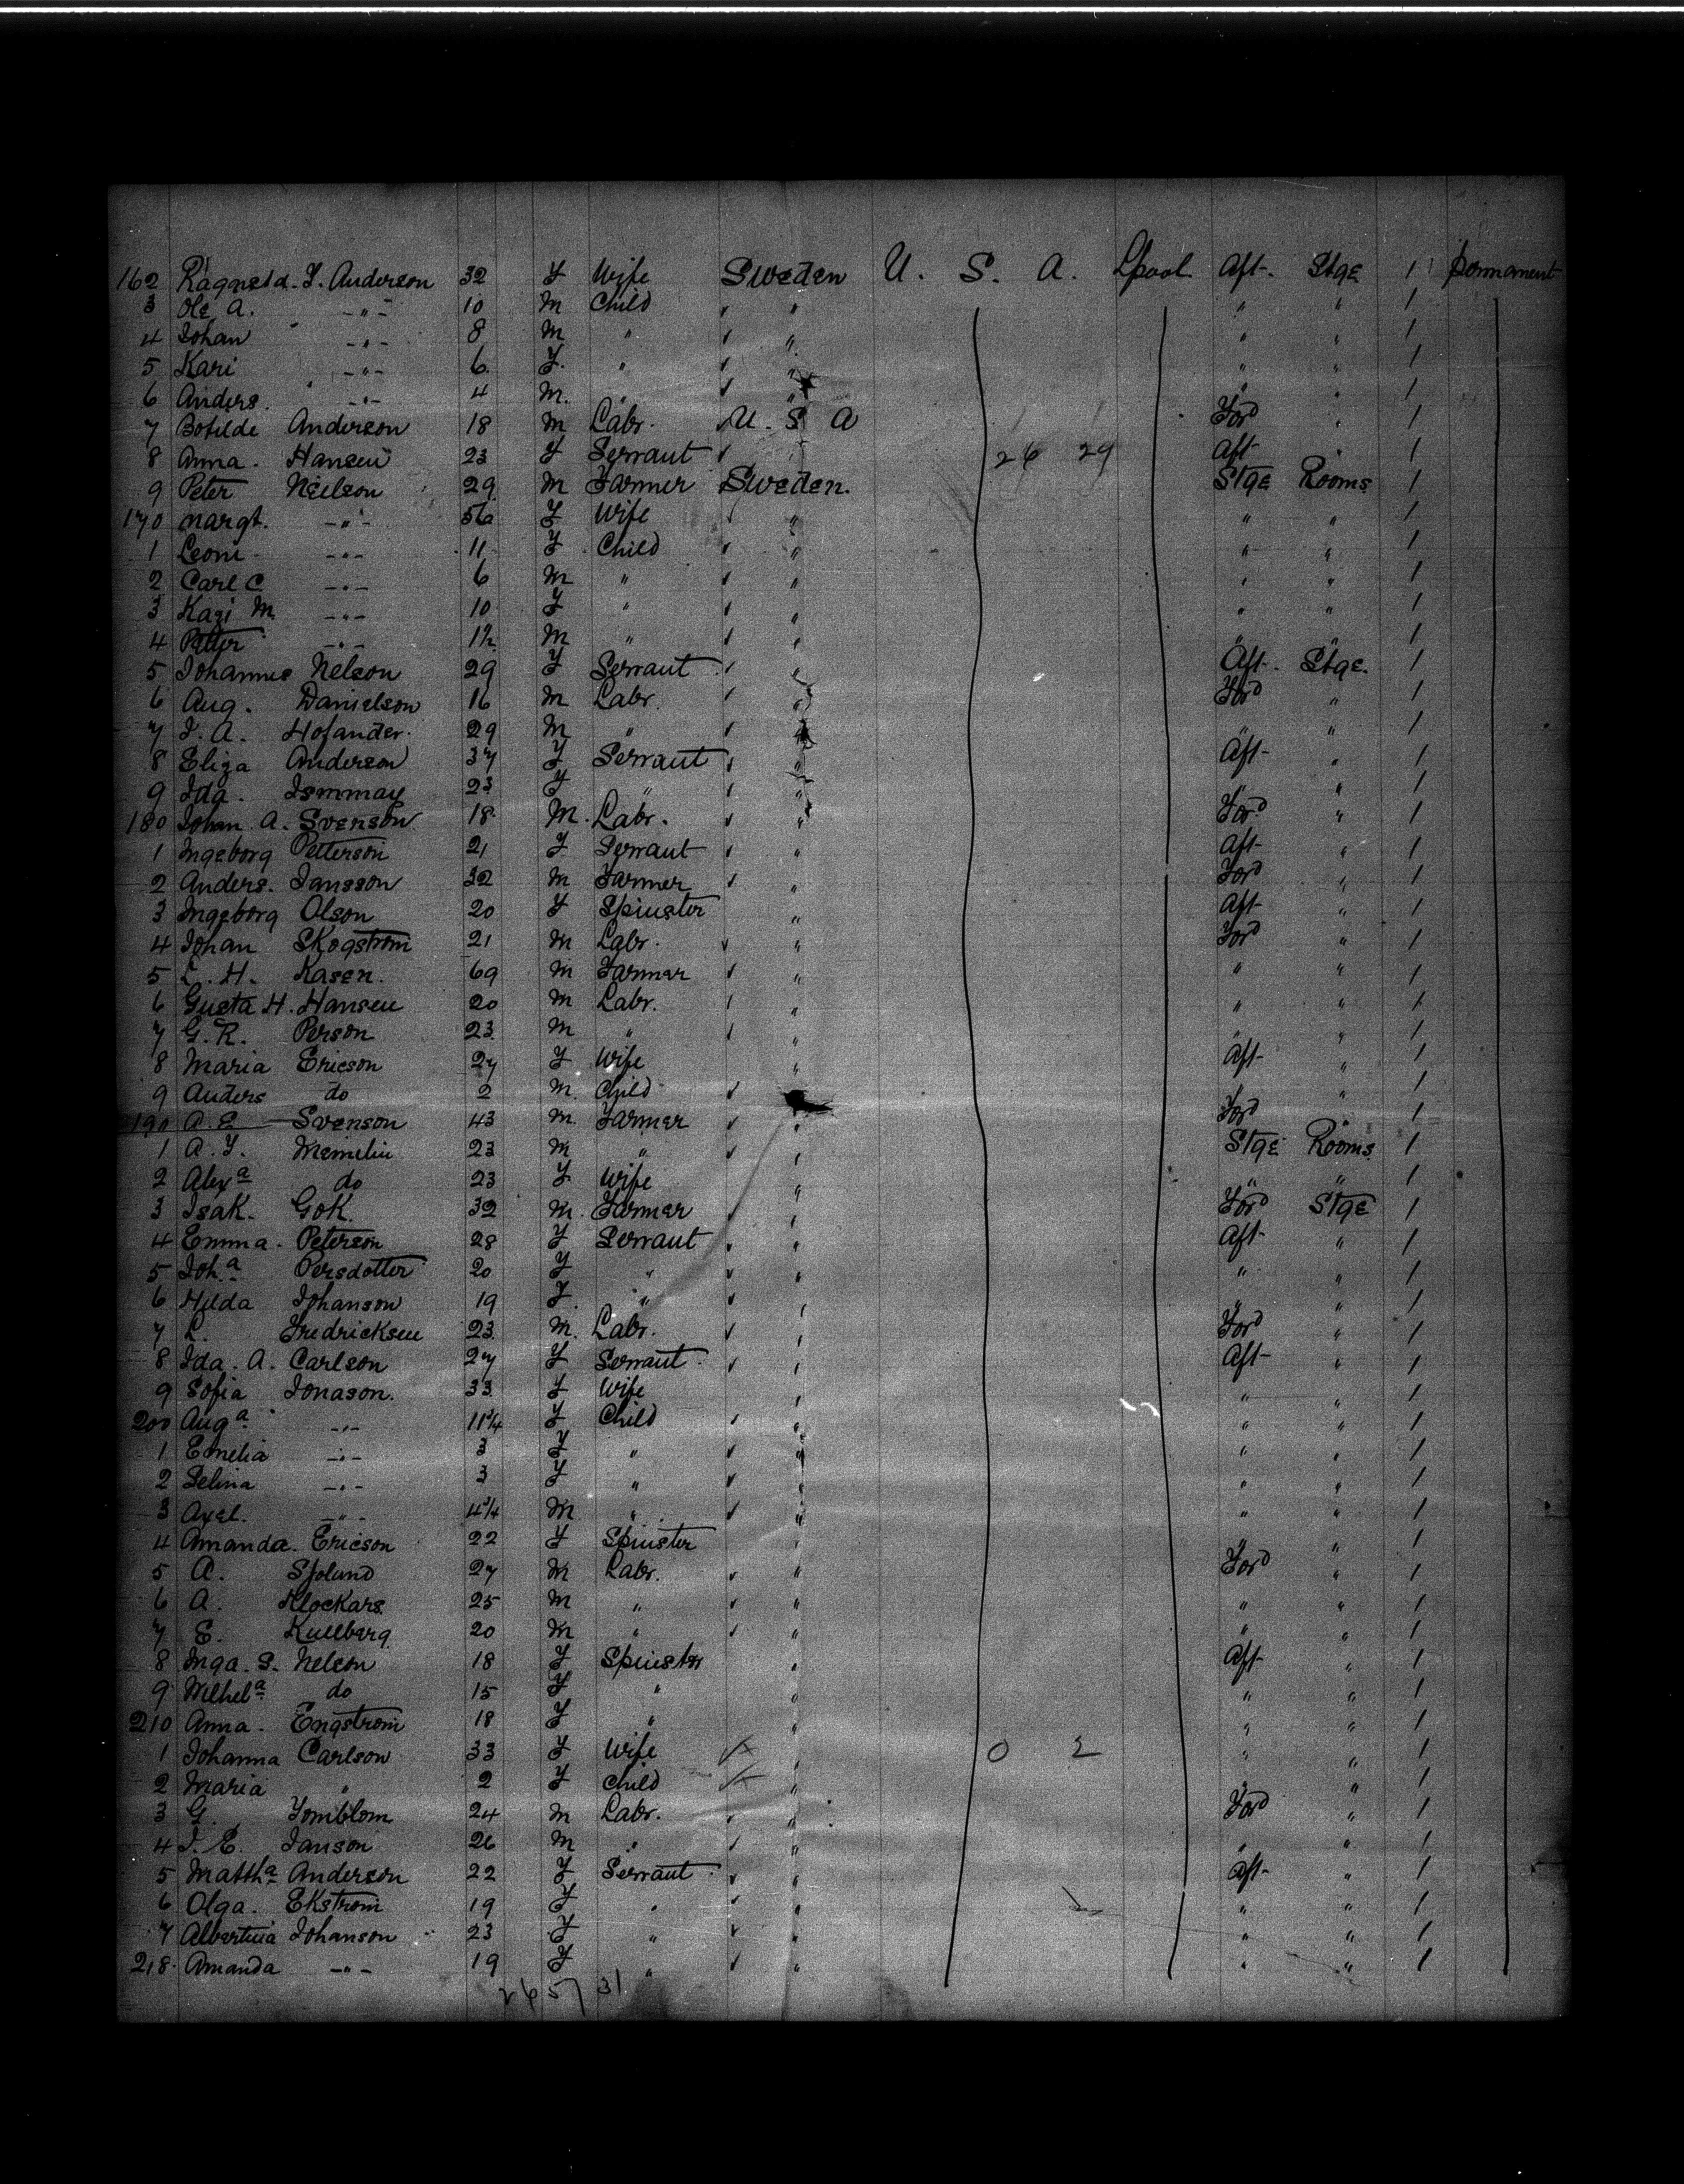 162 Ragneld. I. Anderson 32 F Wife Sweden U. S. A. Lpool Aft- Stge 1 permanent
3 Ole A. -"- 10 M Child " " " 1
4 Johan -"- 8 M " " " " 1
5 Kari -"- 6 F " " " " 1
6 Anders. -"- 4 M. " " " " 1
7 Botilde Anderson 18 M Labr. U. S A Ford " 1
8 Anna. Hansen 23 F Servant 26 29 Aft- " 1
9 Peter Neilson 29 M Farmer Sweden. Stge Rooms 1
170 Margt. -"- 56 F Wife " " " 1
1 Leoni -"- 11 F Child " " " 1
2 Carl C -"- 6 M " " " " 1
3 Kazi M. -"- 10 F " " " " 1
4 Petter -"- 1½ M " " " " 1
5 Johannes Nelson 29 F Servant " Aft- Stge. 1
6 Aug. Danielson 16 M Labr. " Ford " 1
7 J. A. Hofander. 29 M " " " " 1
8 Eliza Anderson 37 F Servant " Aft- " 1
9 Ida. Ismmay 23 F " " " " 1
180 Johan A. Svenson 18 M. Labr. " Ford " 1
1 Ingeborg Petterson 21 F Servant " Aft- " 1
2 Anders. Jansson 32 M Farmer " Ford " 1
3 Ingeborg Olson 20 F Spinster " Aft- " 1
4 Johan Skogstrom 21 M Labr. " Ford " 1
5 H. Kasen. 69 M Farmer " " " 1
6 Gusta H. Hansen 20 M Labr. " " " 1
7 G. R. Person 23 M " " " " 1
8 Maria Ericson 27 F Wife " Aft- " 1
9 Anders do 2 M. Child " " " 1
190 A. E Svenson 43 M. Farmer " Ford " 1
1 A. F. Memelin 23 M " " Stge Rooms 1
2 Alexa do 23 F Wife " " " 1
3 Isak. Gok. 32 M. Farmer " Ford Stge 1
4 Emma. Peterson 28 F Servant " Aft- " 1
5 Joha Persdotter 20 F " " " " 1
6 Hilda Johanson 19 F " " " " 1
7 L. Fredricksen 23 M. Labr. " Ford " 1
8 Ida. A. Carlson 27 F Servant " Aft- " 1
9 Sofia Jonason. 33 F Wife " " " 1
200 Auga -"- 11¾ F Child " " " 1
1 Emelia -"- 3 F " " " " 1
2 Selina -"- 3 F " " " " 1
3 Axel. -"- 4¾ M " " " " 1
4 Amanda. Ericson 22 F Spinster " " " 1
5 A. Sjolund 27 M Labr. " Ford " 1
6 A. Klockars 25 M " " " " 1
7 E. Kullberg 20 M " " " " 1
8 Inga. S. Nelson 18 F Spinster " Aft- " 1
9 Wilhela do 15 F " " " " 1
210 Anna. Engstrom 18 F " " " " 1
1 Johanna Carlson 33 F Wife " 0 2 " " 1
2 Maria " 2 F Child " " " 1
3 G. Tomblom 24 M Labr. " Ford " 1
4 J. E. Janson 26 M " " " " 1
5 Mattha Anderson 22 F Servant " Aft- " 1
6 Olga. Ekstrom 19 F " " " " 1
7 Albertina Johanson 23 F " " " " 1
218. Amanda -"- 19 F " " " " 1
26 57 31